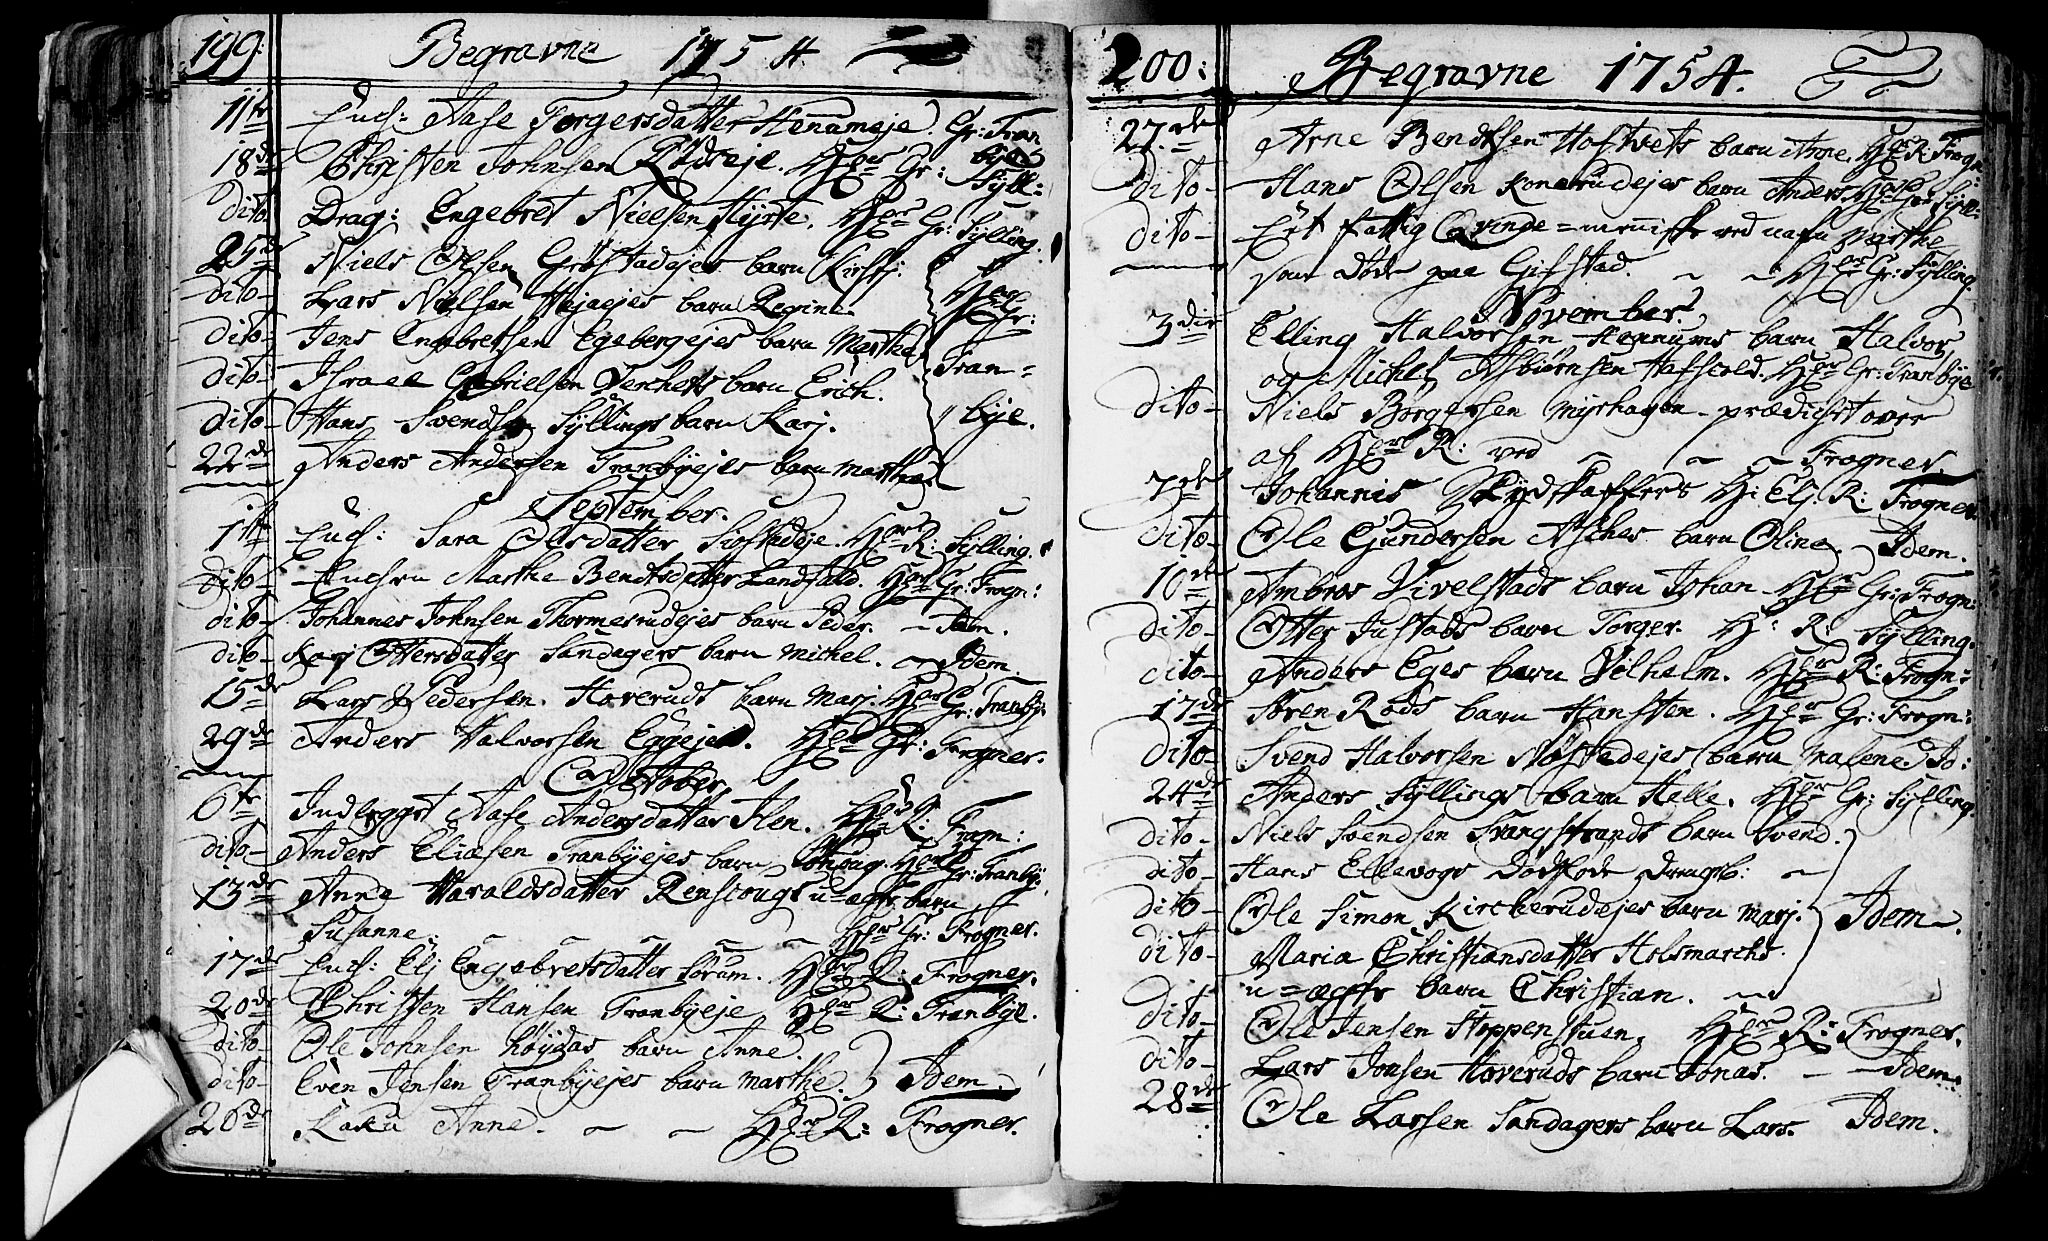 199: Begravne 1754.
11te Ench: Aase Torgersdatter Hennumeje. Gr: Tran
18de Christen Johnsen Rødseje. Hr Gr: Sylling
bye
dito Drag: Engebret Nielsen Hyrte. Hr Gr: Sylling.
25de Niels Olsen Grøstadejes barn Kirstj
dito- Lars Nielsen ejes barn Regine. Hr Gr:
dito- Jens Engebretsen Egebergejes barn Marthe Tran=
dito- Jsrael Gabrielsen Verckets barn Erich.
dito- Hans Svendsen Syllings barn Karj. bye.
22de Anders Andersen Tranbyejes barn Marthe.
September.
1ste Ench: Sara Olesdatter Hr R: Sylling.
dito- Enchen Marthe Bendtsdatter Landfald. Hr Gr: Frogn:
dito Johannes Johnsen Thormesrudejes barn Peder. - Idem.
dito- Karj Ottersdatter Sandagers barn Michel. - Idem.
15de Lars Pedersen Hoverudt barn Marj. Hr Gr: Tranby.
29de Anders Halvorsen Eggejes. Hr Gr: Frogner.
October.
6te Indlagget Aase Andersdatter Hen. Hr R: Frogn:
dito- Anders Eliasen Tranbyejes barn Hr Gr: Tranby:
13de Anne Haraldsdatter Renscougs u-ægte barn
Susanne. Hr Gr: Frogner.
17de Ench: Elj Engebretsdatter Sørum. Hr R: Frogner.
20de Christen Hansen Tranbyeje Hr R: Tranbye.
dito- Ole Johnsen Høydas barn Anne.
dito- Even Jensen Tranbyejes barn Marthe. Idem.
26de Anne. Hr R: Frogner.
200: Begravne 1754.
27de Arne Bendtsen Hoftvets barn Anne. Hr R: Frogn:
dito- Hans Olsen Konerudejes barn Anders Hr Gr: Syll:
dito- Eet fattig Qvinde=menniske ved nafn Marthe
som døde paa Gifstad. - - Hr Gr: Sylling
November.
3die Elling Halvorsen Hennums barn Halvor
og Michel Asbiørnsen Hafscold. Hr Gr: Tranbye
dito- Niels Børgersen Myrhagen - prædichet over
af Hr R: ved - - - Frogner.
7de Johannis Skydskaffers H: Elj. R: Frogner.
dito- Ole Gundersen Asches barn Oline. - Idem.
10de Ambros Vivelstads barn Johan Hr Gr: Frogn:
dito- Otter Justads barn Torger. H: R: Sylling.
dito- Anders Eges barn Vilhelm. Hr R: Frogn:
17de Søren Røds barn Hansten. Hr Gr: Frogn:
dito- Svend Halvorsen Nøstedejes barn Malene Id:
24de Anders Syllings barn Helle. Hr Gr: Sylling.
dito- Niels Svendsen Svangstrands barn Svend.
dito- Hans Ellevogs Dødfode Drengb: -
dito- Ole Simon Kirckerudejes barn Marj. Idem.
dito- Maria Christiansdatter Holsmarchs
u=ægte barn Christian.
dito- Ole Jensen Stoppenstuen. Hr R: Frogner.
dito- Lars Jonsen Hoveruds barn Jonas. - - Idem.
28de Ole Larsen Sandagers barn Lars. Idem.